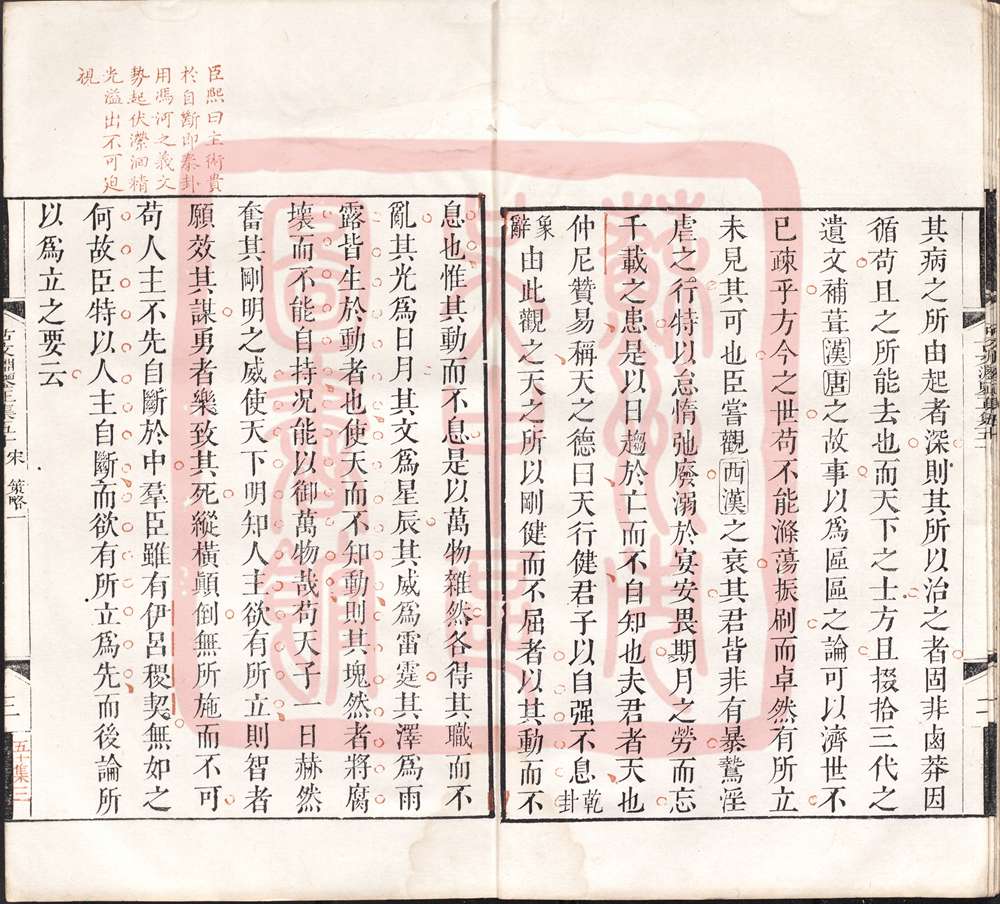 其病之所由起者深則其所以治之者固非鹵莽因
循苟且之所能去也而天下之士方且掇拾三代之
遺文補葺漢唐之故事以爲區區之論可以濟世不
已疎乎方今之世苟不能滌蕩振刷而卓然有所立
未見其可也臣嘗觀西漢之衰其君皆非有暴鷙淫
虐之行特以怠惰弛廢溺於宴安畏期月之勞而忘
千載之患是以日趨於亡而不自知也夫君者天也
仲尼贊易稱天之德曰天行健君子以自强不息乾卦
象辭由此觀之天之所以剛健而不屈者以其動而不
息也惟其動而不息是以萬物雜然各得其職而不
亂其光爲日月其文爲星辰其威爲雷霆其澤爲雨
露皆生於動者也使天而不知動則其塊然者將腐
壞而不能自持况能以御萬物哉苟天子一日赫然
奮其剛明之威使天下明知人主欲有所立則智者
願效其謀勇者樂致其死縱橫顛倒無所施而不可
苟人主不先自斷於中羣臣雖有伊呂稷契無如之
何故臣特以人主自斷而欲有所立爲先而後論所
以爲立之要云
臣熙曰主術貴
於自斷即泰卦
用馮河之義文
勢起伏瀠洄精
光溢出不可迫
視
宋 策略一
三
五十集三